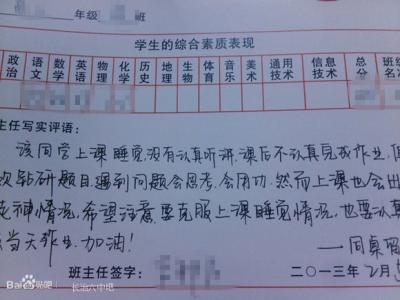 年级 班
学生的综合素质表现
政治 语文 数学 英语 物理 化学 历史 地理 生物 体育 音乐 美术 通用技术 信息技术 总分 班级名
主任写实评语:
该同学上课睡觉,没有认真听讲,课后不认真完成作业,但
欢钻研题目,遇到问题会思考,会用功,然而上课也会出
走神情况,希望注意,要克服上课睡觉情况,也要认真
当天作业,加油!
——同桌留
班主任签字:
二〇一三年 2月
Bai度贴吧 长治六中吧